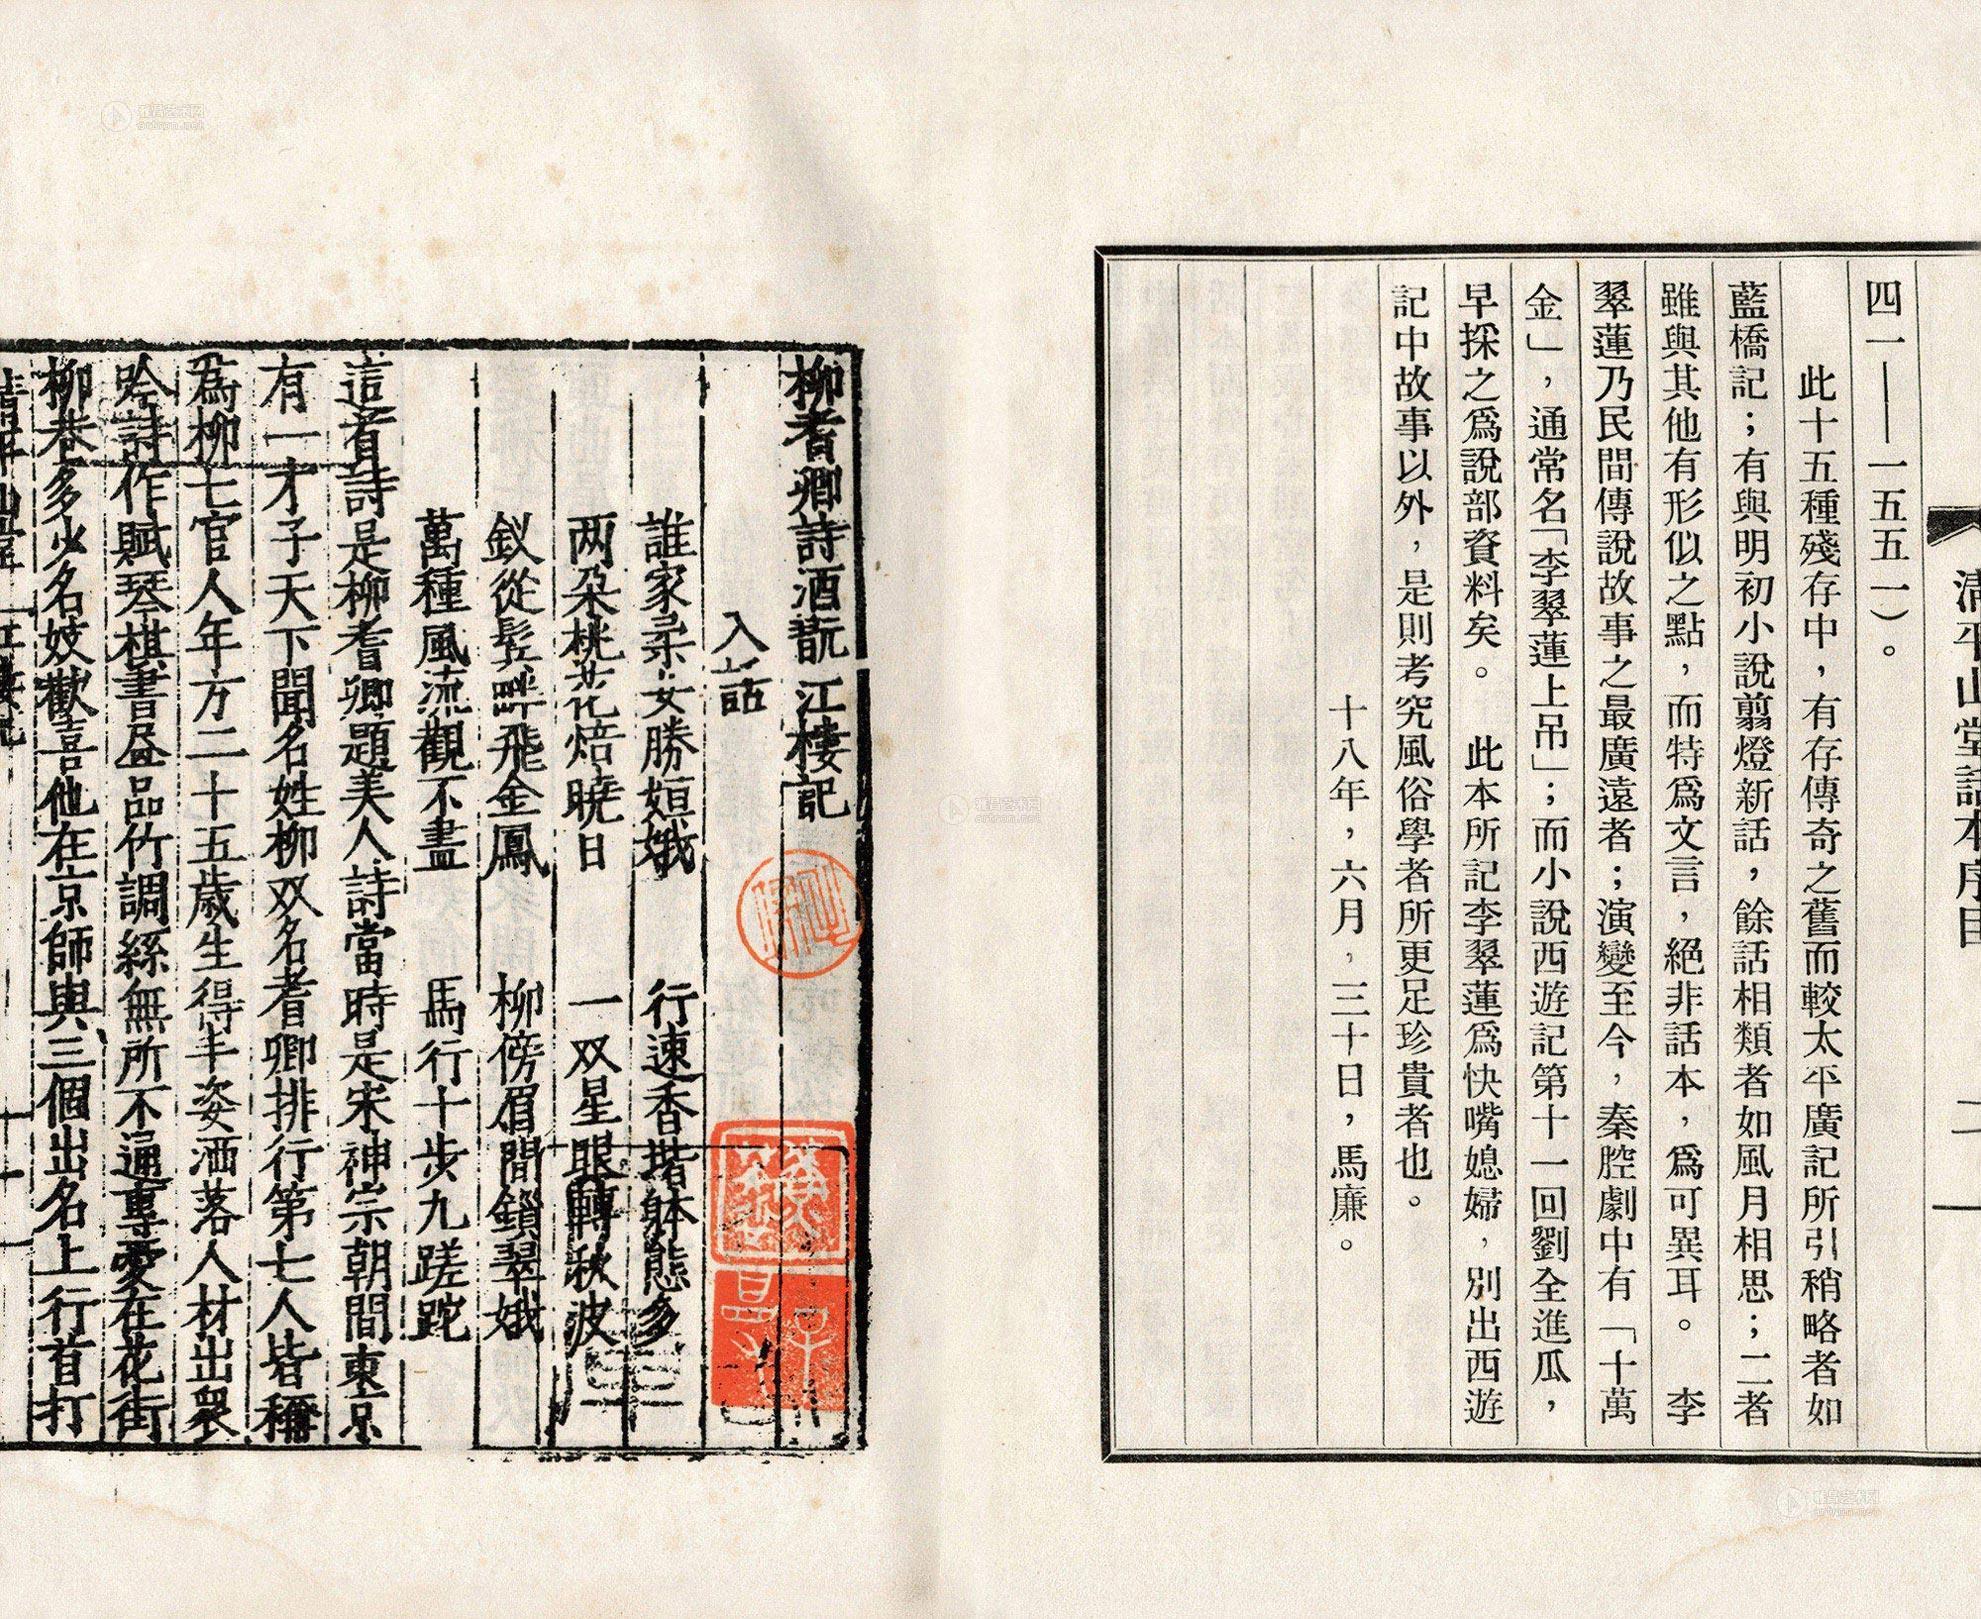 清平山堂話本序目
二
四一——一五五一）。
此十五種殘存中，有存傳奇之舊而較太平廣記所引稍略者如
藍橋記；有與明初小說翦燈新話，餘話相類者如風月相思；二者
雖與其他有形似之點，而特爲文言，絕非話本，爲可異耳。　李
翠蓮乃民間傳說故事之最廣遠者；演變至今，秦腔劇中有「十萬
金」，通常名「李翠蓮上吊」；而小說西遊記第十一回劉全進瓜，
早採之爲說部資料矣。　此本所記李翠蓮爲快嘴媳婦，別出西遊
記中故事以外，是則考究風俗學者所更足珍貴者也。
十八年，六月，三十日，馬廉。
柳耆卿詩酒翫江樓記
入話
誰家柔女勝姮娥　行速香堦躰態多
两朶桃花焙曉日　一双星眼轉秋波
釵從鬂畔飛金鳳　柳傍眉間鎖翠娥
萬種風流觀不盡　馬行十步九蹉跎
這首詩是柳耆卿題美人詩當時是宋神宗朝間東京
有一才子天下聞名姓柳双名耆卿排行第七人皆稱
為柳七官人年方二十五歲生得丰姿洒落人材出衆
吟詩作賦琴棋書画品竹調絲無所不通專愛在花街
柳巷多少名妓歡喜他在京師與三個出名上行首打
雅昌艺术网
artron.net
雅昌艺术网
artron.net
雅昌艺术网
artron.net